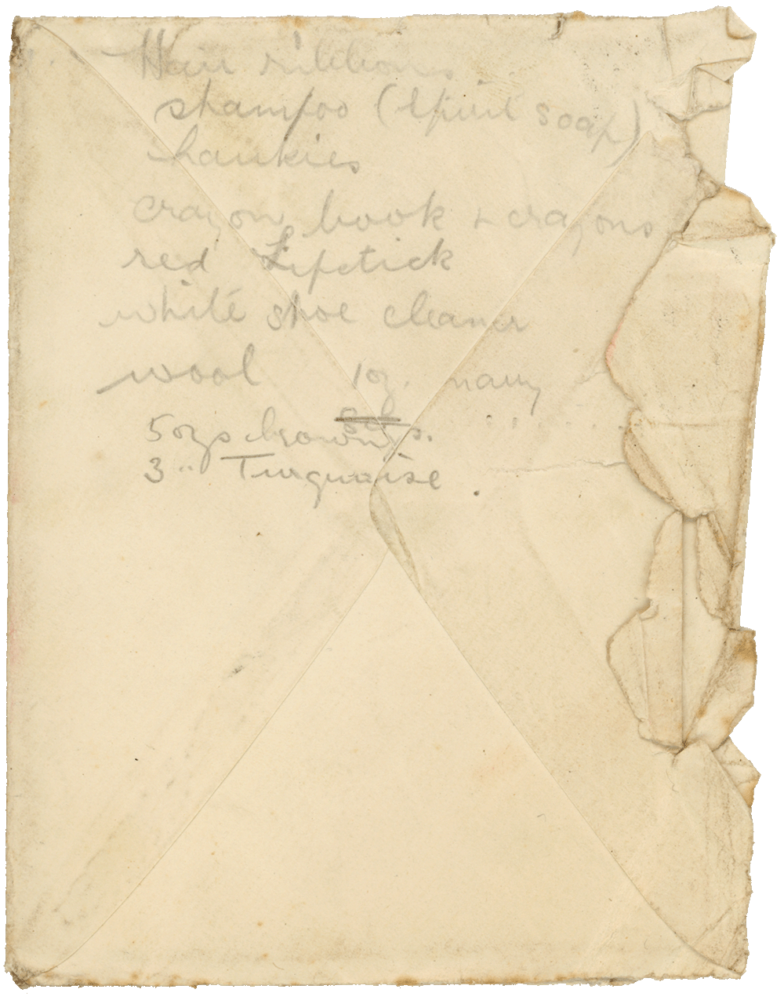 Hair ribbons
shampoo (spirit soap)
hankies
crayon book + crayons
red Lipstick
white shoe cleaner
wool 1oz. navy
5ozs brown
3 " Turquoise